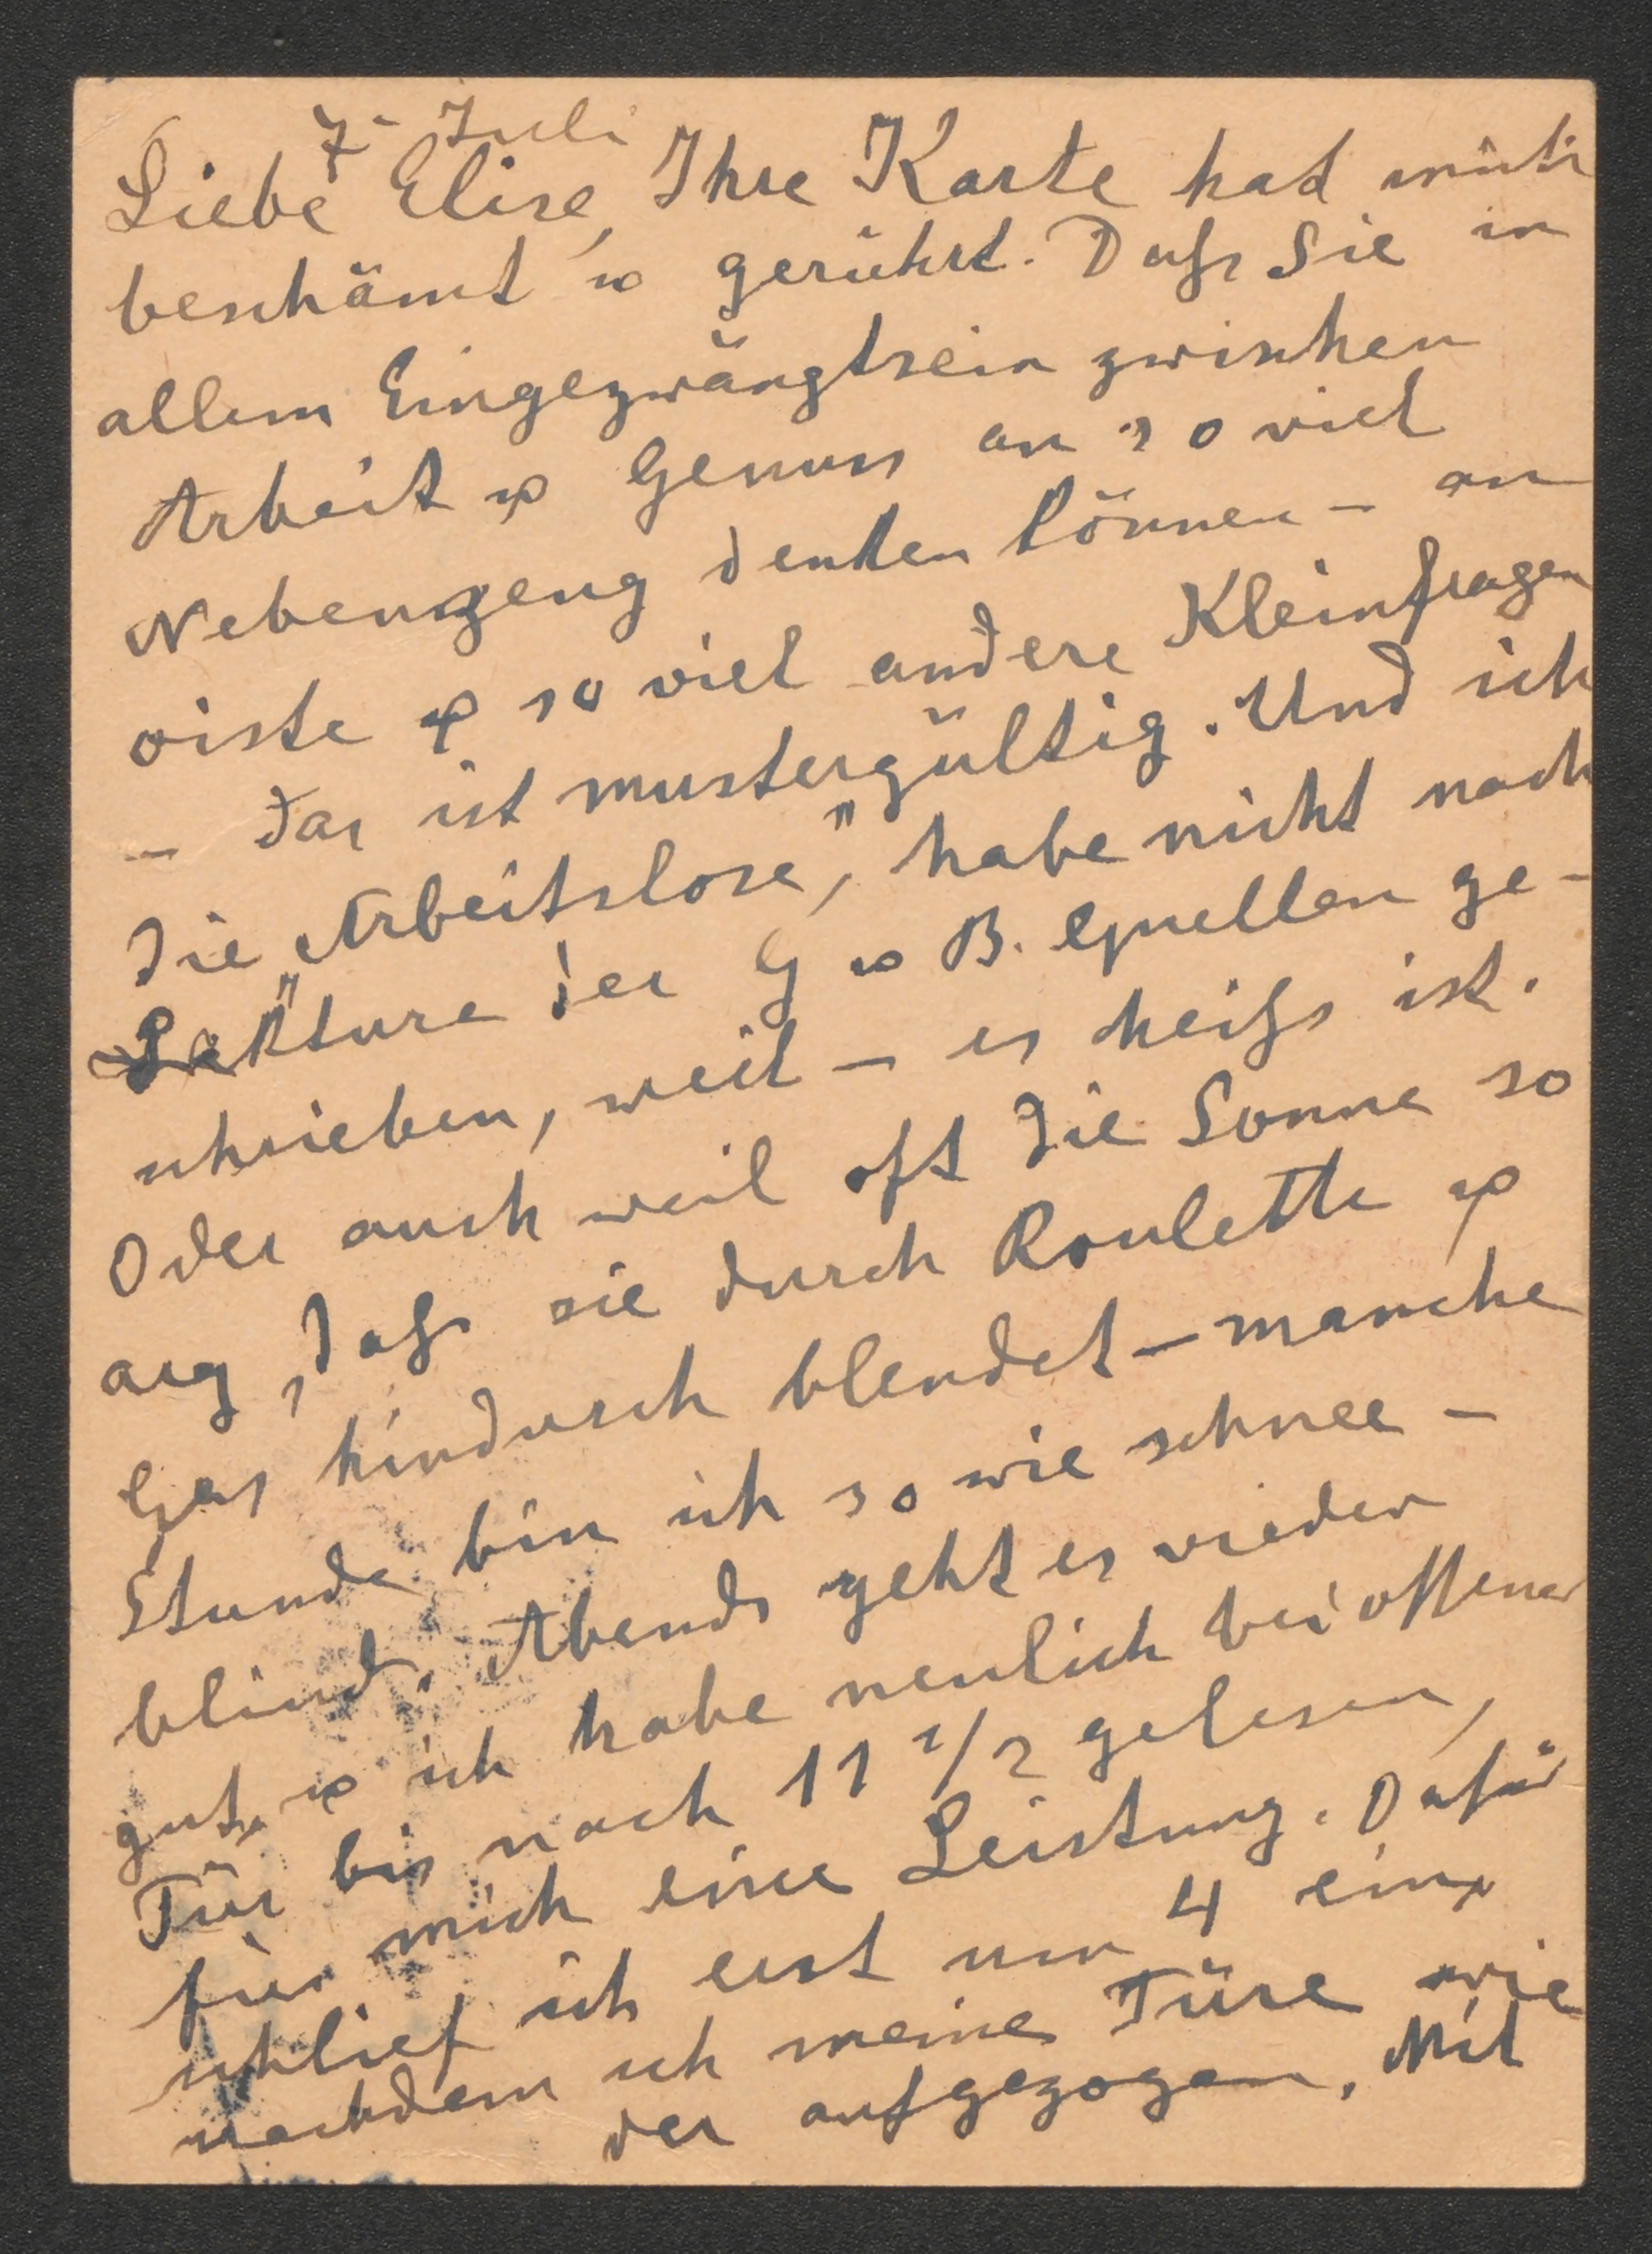 7. Juli
Liebe Elise, Ihre Karte hat mich
beschämt u gerührt. Dass Sie in
allem Eingezwängtsein zwischen
Arbeit u Genuss an so viel
Nebenzeug denken können – an
oiste u so viel andere Kleinfragen
– das ist mustergültig. Und ich
die „Arbeitslose", habe nicht nach
Lektüre der G u B. Quellen ge-
schrieben, weil – es heiss ist.
Oder auch weil oft die Sonne so
arg, dass sie durch Roulette u
Gas hindurch blendet – manche
Stunde bin ich so wie schnee –
blind. Abends geht es wieder
gut, u ich habe neulich bei offener
Tür bis nach 11 1/2 gelesen,
für mich eine Leistung. Dafür
schlief ich erst um 4 ein,
nachdem ich meine Türe wie
der aufgezogen. Mit